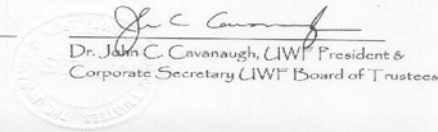 Dr. John C. Cavanaugh, UWF President &
Corporate Secretary UWF Board of Trustees